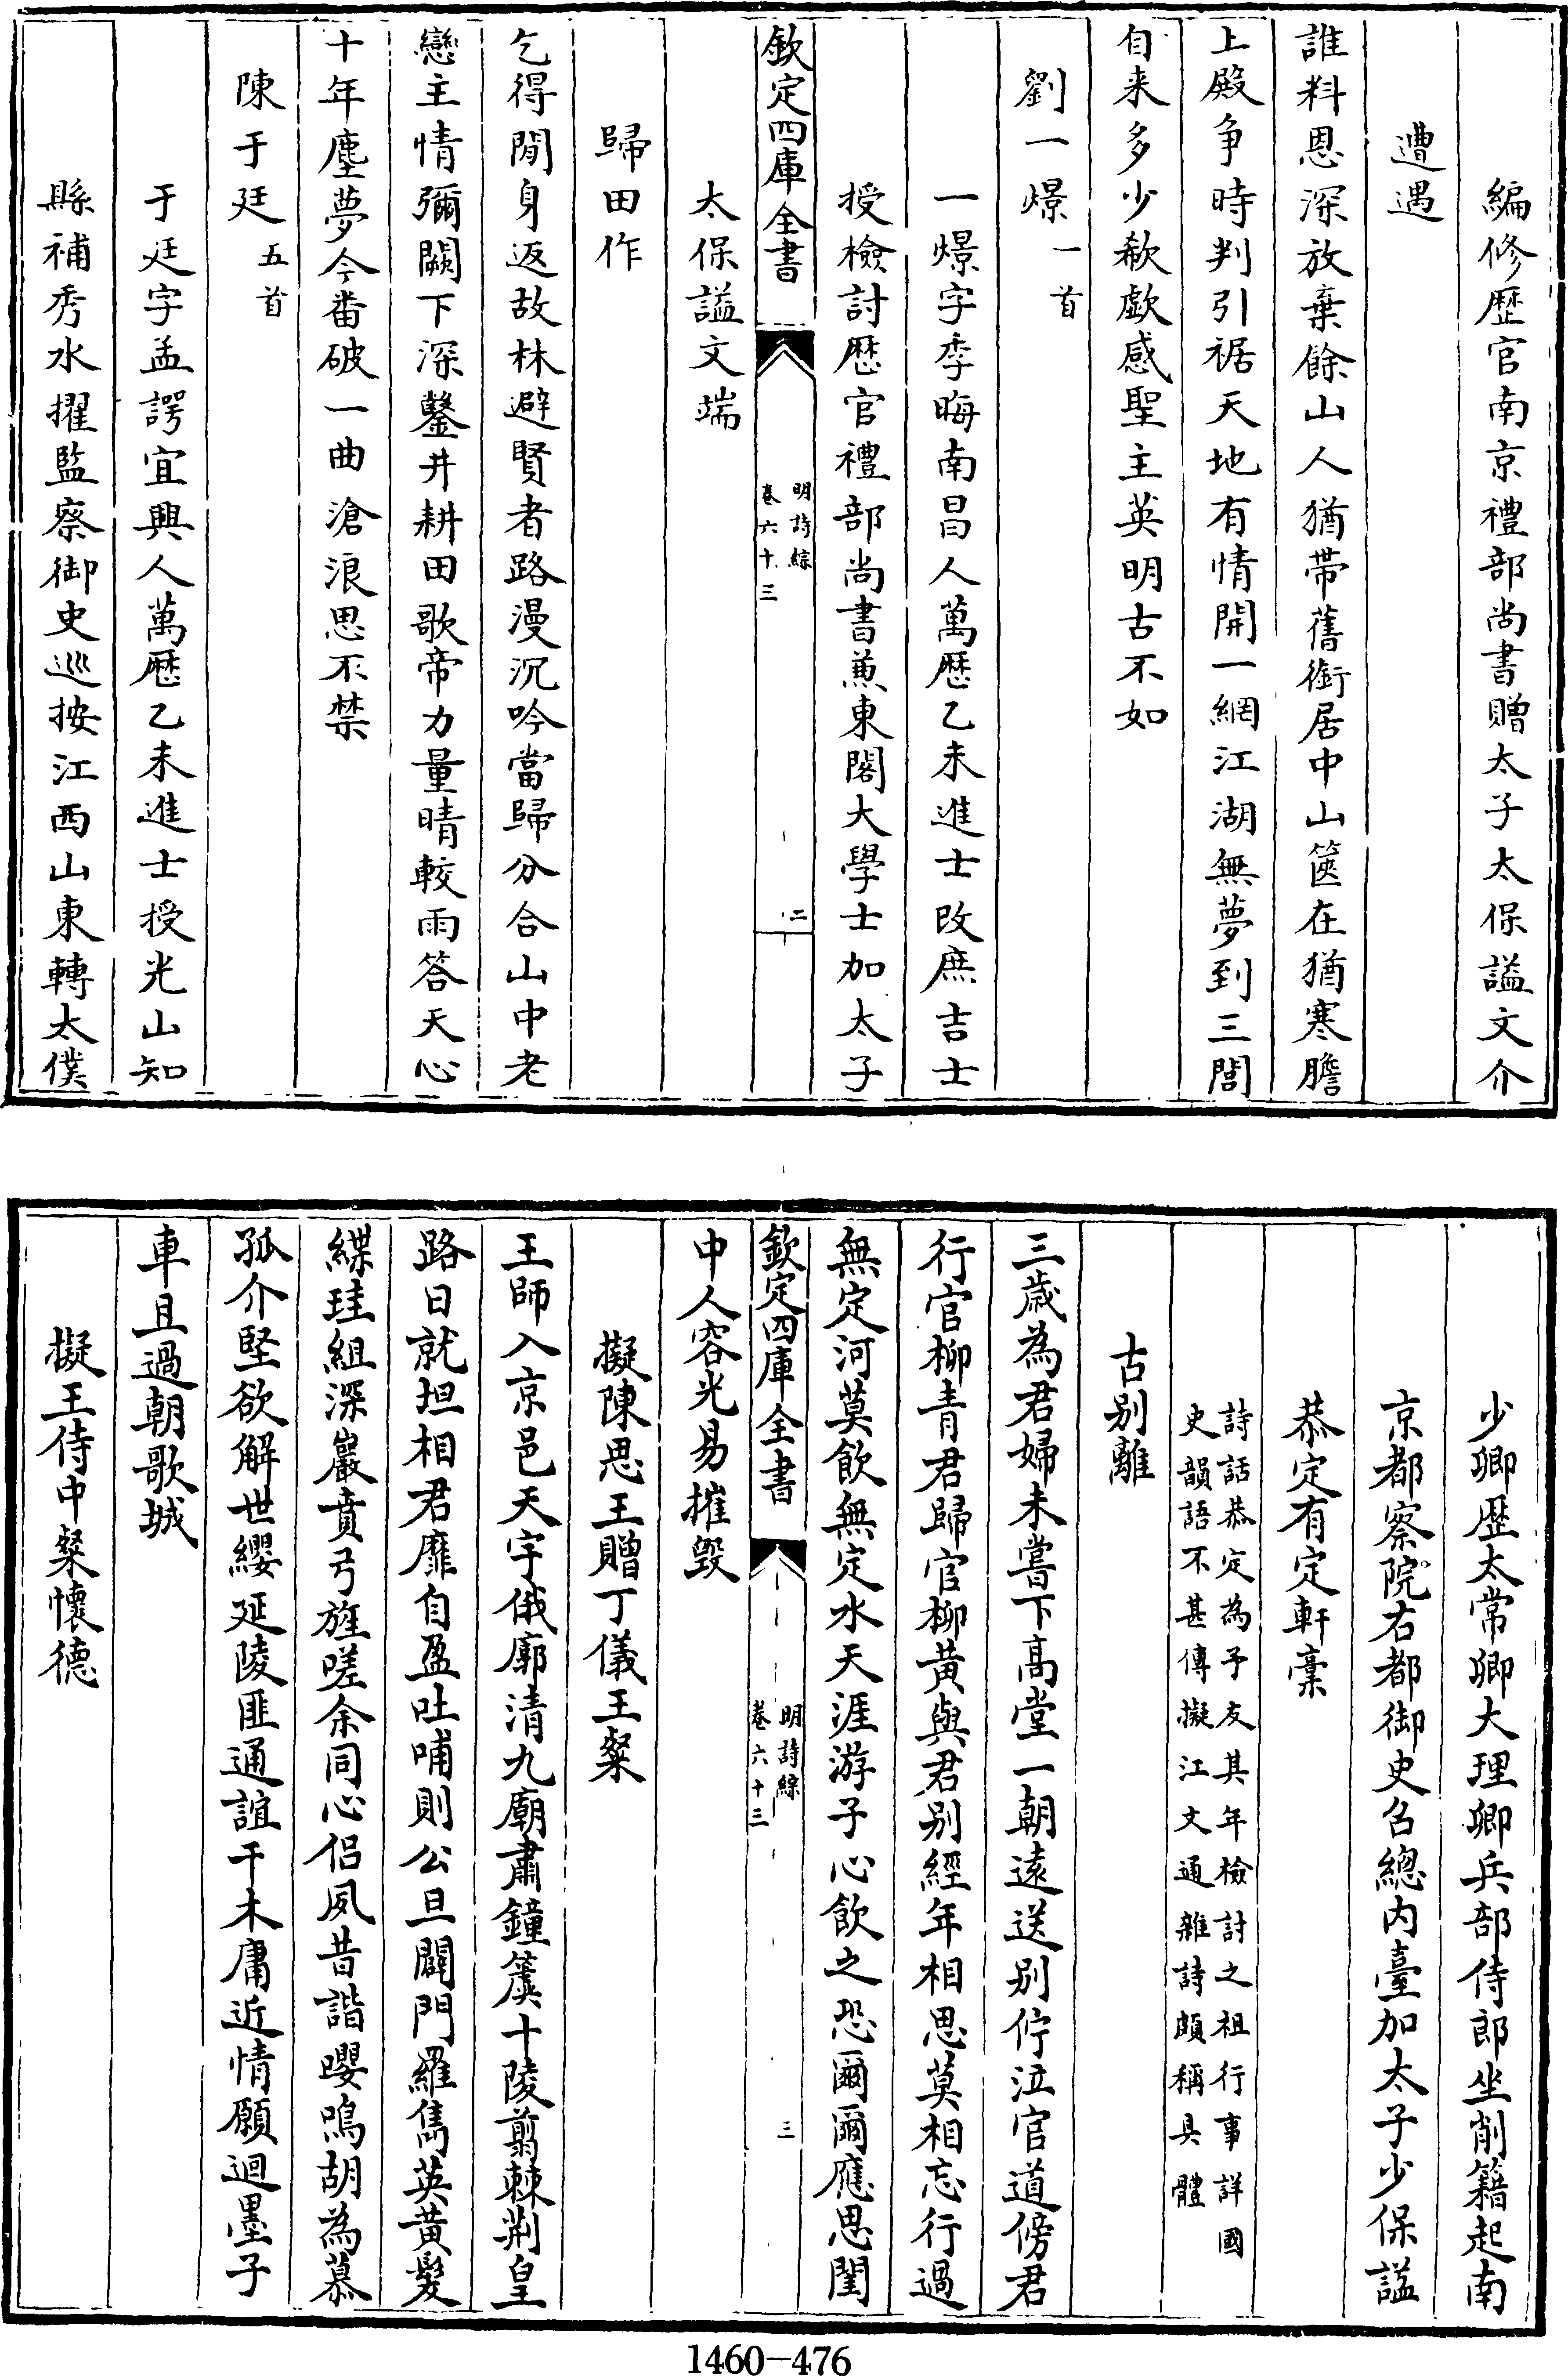 編修歴官南京禮部尚書贈太子太保謚文介
遭遇
誰料恩深放棄餘山人猶帶舊銜居中山篋在猶寒膽
上殿争時判引裾天地有情開一網江湖無夢到三閭
自来多少欷歔感聖主英明古不如
劉一燝一首
一燝字季晦南昌人萬歴乙未進士改庶吉士
授檢討歴官禮部尚書兼東閣大學士加太子
欽定四庫全書
明詩綜
卷六十三
二
太保謚文端
歸田作
乞得閒身返故林避賢者路漫沉吟當歸分合山中老
戀主情彌闕下深鑿井耕田歌帝力量晴較雨答天心
十年塵夢今番破一曲滄浪思不禁
陳于廷五首
于廷字孟諤宜興人萬歴乙未進士授光山知
縣補秀水擢監察御史巡按江西山東轉太僕
少卿歴太常卿大理卿兵部侍郎坐削籍起南
京都察院右都御史召總内臺加太子少保謚
恭定有定軒藁
詩話恭定為予友其年檢討之祖行事詳國
史韻語不甚傳擬江文通雜詩頗稱具體
古别離
三歲為君婦未嘗下高堂一朝遠送别佇泣官道傍君
行官柳青君歸官柳黄與君别經年相思莫相忘行過
無定河莫飲無定水天涯游子心飲之恐爾爾應思閨
欽定四庫全書
明詩綜
卷六十三
三
中人容光易摧毁
擬陳思王贈丁儀王粲
王師入京邑天宇俄廓清九廟肅鐘簴十陵翦棘荆皇
路日就坦相君靡自盈吐哺則公旦闢門羅雋英黄髮
緤珪組深巖賁弓旌嗟余同心侣夙昔諧嚶鳴胡為慕
孤介堅欲解世纓延陵匪通誼干木庸近情願迴墨子
車且過朝歌城
擬王侍中粲懷德
1460-476